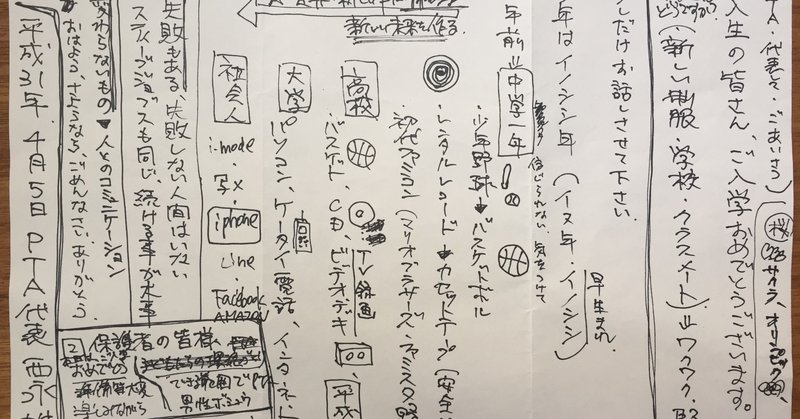 TA・代表して ごあいさつ
桜
サクラ、オリンピック
入生の皆さん、ご入学おめでとうございます。
どうですか
(新しい制服 学校・クラスメート) ⇒ ワクワク
しだけお話しさせて下さい。
年はイノシシ年 (イヌ年・イノシシ)
早生まれ
年前 ⇒ 中学一年
信じられない 気をつけて
・少年野球 ➡ バスケットボール
・レンタルレコード ➡ カセットテープ (安全
・初代ファミコン (マリオブラザーズ・ファミスタ
高校
バスケット、CD、ビデオデキ
TV録画
平成
大学
パソコン、ケータイ電話、インタネット
社会人
i-mode
・写メ
iphone
Line
Facebook
AMAZON
新しい未来を作る
失敗もある、失敗しない人間はいない
スティーブジョブスも同じ、続ける事が大事
変わらないもの ➡ 人とのコミニケーション
おはよう、さようなら、ごめんなさい、ありがとう
2 保護者の皆様、
おめでとう
男性ボ
平成31年、4月5日 PTA代表 西